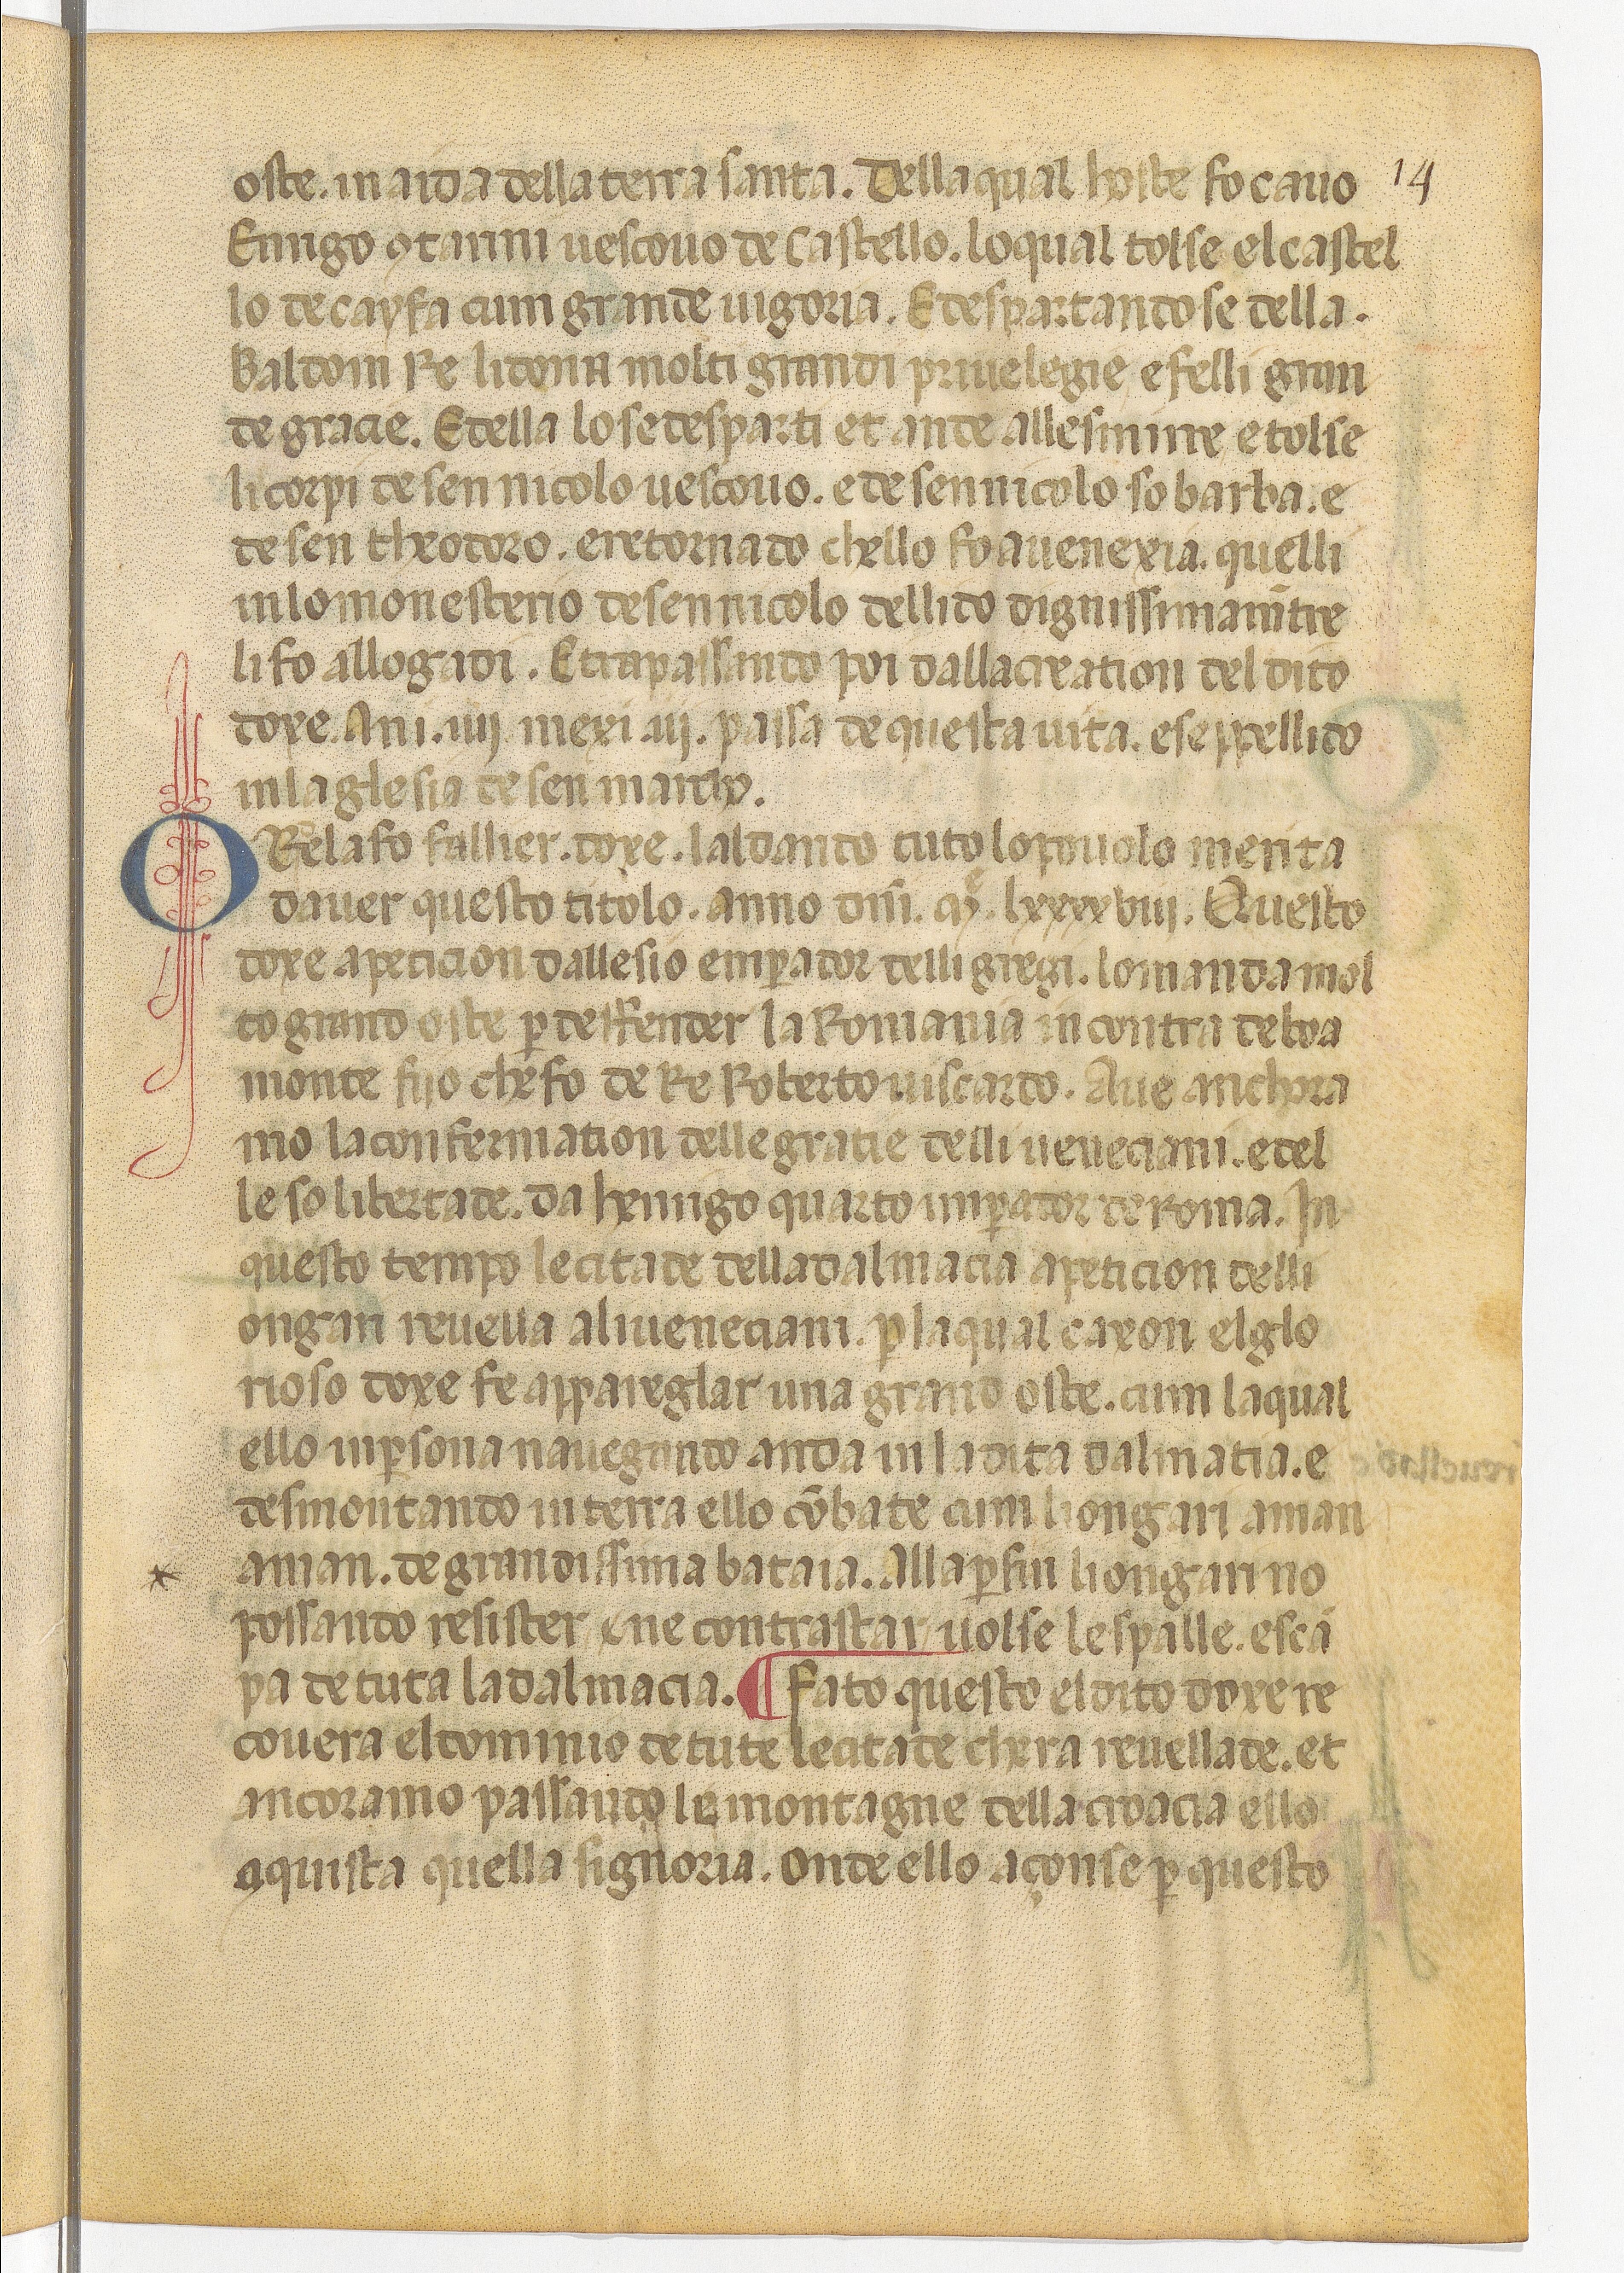 oste. in aida della terra santa. Della qual hoste fo cauo 14
Enrigo ꝯtarini uescouo de Castello. lo qual tolse el castel
lo de cayfa cum grande uigoria. E despartandose de lla.
Baldoin Re li dona molti grandi priuelegie e felli gran
de gracie. E de lla lo se desparti et ande alle smirre e tolse
li corpi de sen nicolo uescouo. e de sen nicolo so barba. e
de sen theodoro. e retornado chello fo a uenexia. quelli
in lo monesterio de sen nicolo del lido dignissimamẽtre
li fo allogadi. E trapassando poi dalla creation del dito
doxe. Ani. iiij mexi .iij. passa de questa uita. e seppellido
in la glesia de sen marcho.
ORelafo fallier. doxe. laldando tuto lo pouolo merita
dauer questo titolo. anno dñi. Mº. lxxxxviij. Questo
doxe a peticion dallesio emꝑador delli gregi. lo manda mol
to grand oste ꝑ deffender la Romania in contra de boa
monte fijo che fo de Re Roberto uiscardo. Aue anchora
mo la confermation delle gratie delli veneciani. e del
le so libertade. da henrigo quarto imꝑador de Roma. In
questo tempo le citade della dalmacia a peticion delli
ongari reuella ali ueneciani. ꝑ la qual caxon el glo
rioso doxe fe appareglar una grand oste. cum la qual
ello in ꝑsona nauegando anda in la dita dalmatia. e
desmontando in terra ello cõbate cum li ongari a man
a man. de grandissima bataia. Alla ꝑfin li ongari no
possando resister ne contrastar uolse le spalle. e sca
pa de tuta la dalmacia. ¶ Fato questo el dito doxe re
couera el dominio de tute le citade chera reuellade. et
ancoramo passando le montagne della croacia ello
aquista quella signoria. Onde ello açonse ꝑ questo